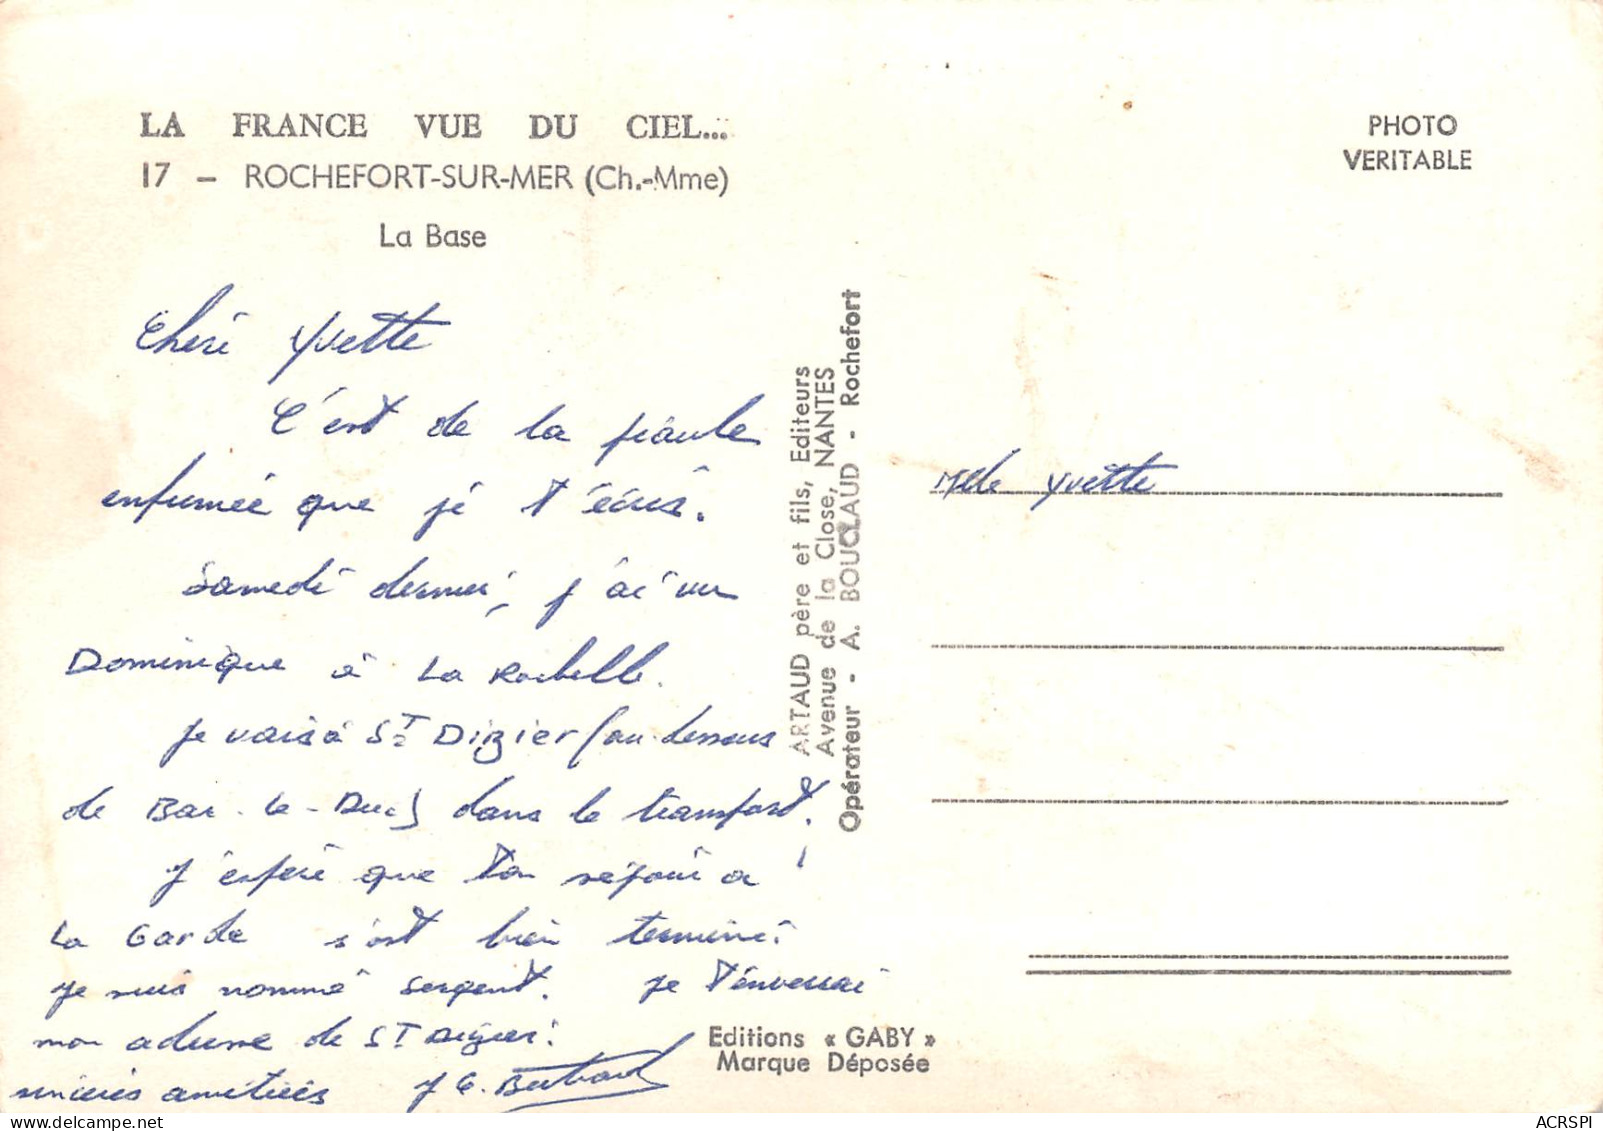 LA FRANCE VUE DU CIEL...
17 – ROCHEFORT-SUR-MER (Ch.-Mme)
La Base
PHOTO
VERITABLE
Chère Yvette
C'est de la piaule
enfumée que je t'écris.
Samedi dernier, j'ai vu
Dominique à La Rochelle.
Je vais à St Dizier (au-dessus
de Bar-le-Duc) dans le transport.
J'espère que ton séjour à
La Garde s'est bien terminé.
Je suis nommé sergent. Je t'enverrai
mon adresse de St Dizier.
sincères amitiés J C. Bertrand
ARTAUD père et fils, Editeurs
Avenue de la Close, NANTES
Opérateur - A. BOUCLAUD - Rochefort
Mlle Yvette
Editions « GABY »
Marque Déposée
ACRSPI